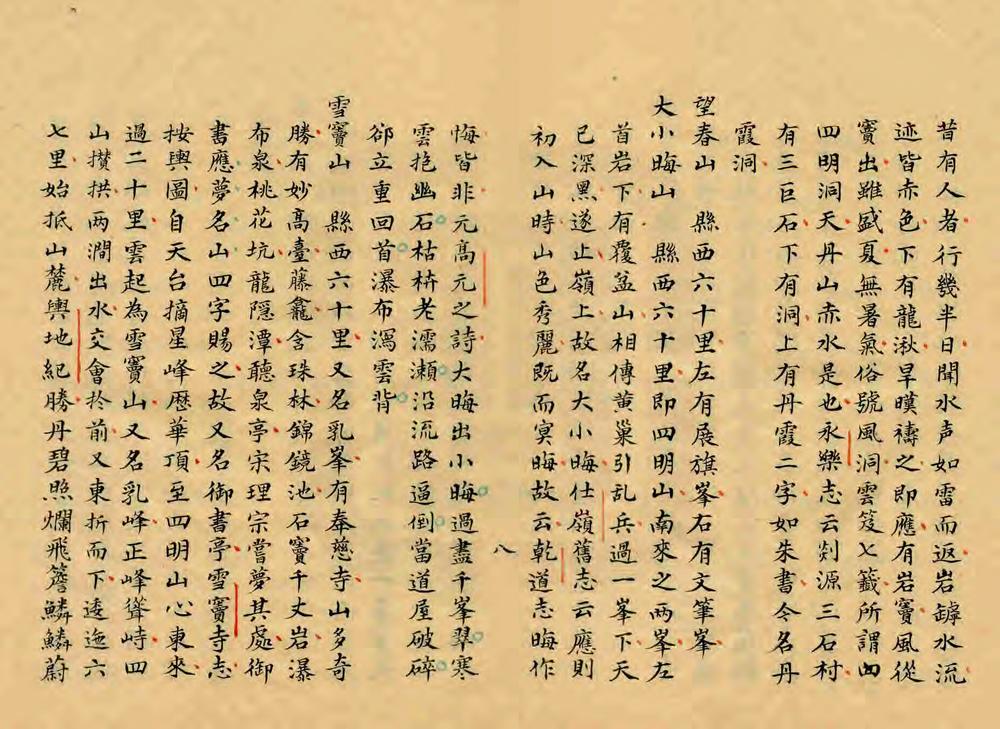 昔有人者行幾半日聞水声如雷而返岩罅水流
迹皆赤色下有龍湫旱暵禱之即應有岩竇風從
竇出雖盛夏無暑氣俗號風洞雲笈七籤所謂四
四明洞天丹山赤水是也永樂志云剡源三石村
有三巨石下有洞上有丹霞二字如朱書今名丹
霞洞
望春山　縣西六十里左有展旗峯右有文筆峯
大小晦山　縣西六十里即四明山南來之两峯左
首岩下有覆盆山相傳黄巢引乱兵過一峯下天
已深黑遂止嶺上故名大小晦仕嶺舊志云應則
初入山時山色秀麗既而㝠晦故云乾道志晦作
八
悔皆非元高元之詩大晦出小晦過盡千峯翠寒
雲抱幽石枯枿老濡瀬沿流路逼倒當道屋破碎
郤立重回首瀑布瀉雲背
雪竇山　縣西六十里又名乳峯有奉慈寺山多奇
勝有妙高臺藤龕含珠林錦鏡池石竇千丈岩瀑
布泉桃花坑龍隱潭聽泉亭宋理宗嘗夢其處御
書應夢名山四字賜之故又名御書亭雪竇寺志
按輿圖自天台摘星峰歷華頂至四明山心東來
過二十里雲起為雪竇山又名乳峰正峰聳峙四
山攅拱两澗出水交會於前又東折而下逶迤六
七里始抵山麓輿地紀勝丹碧照爛飛簷鱗鱗蔚